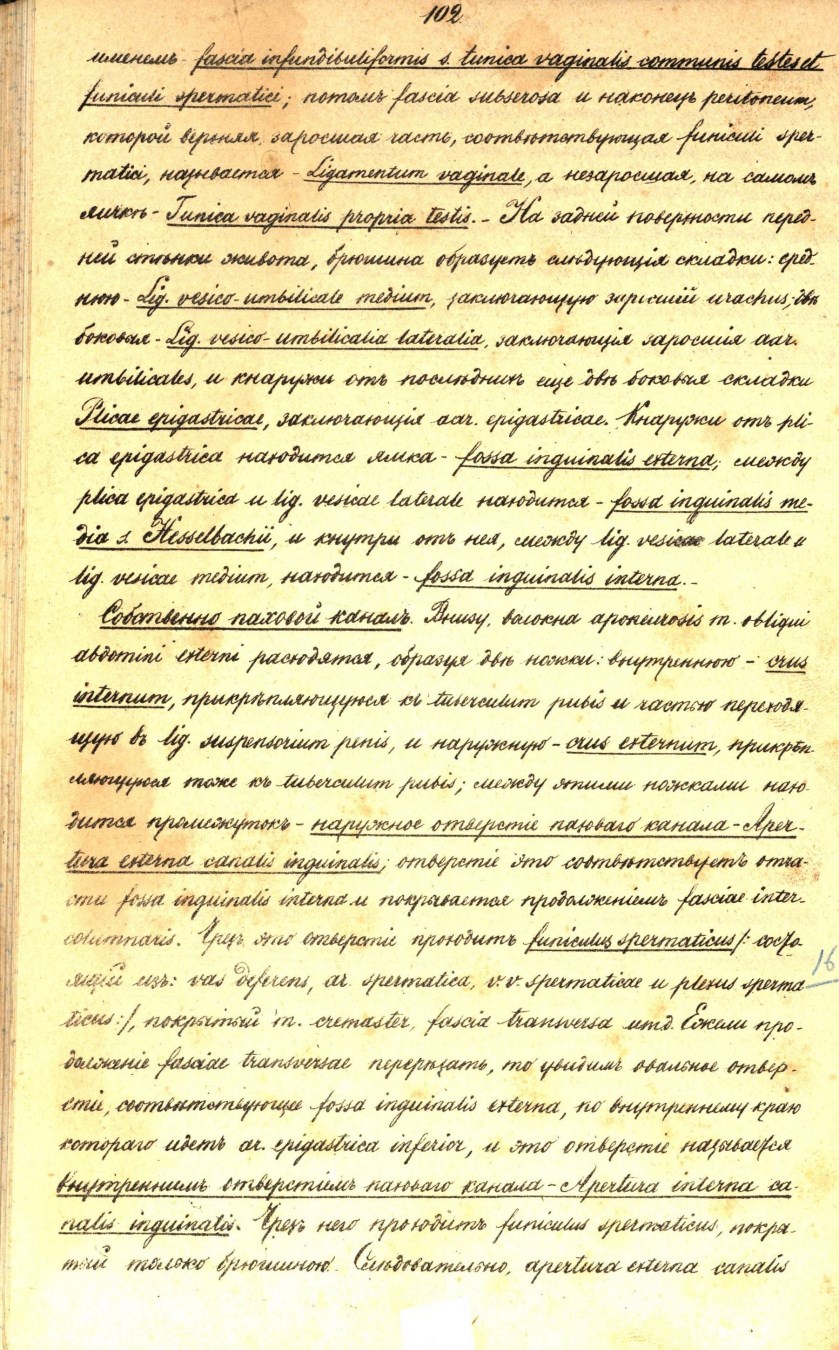 102
именемъ fascia infundibuliformis s. tunica vaginalis communis testes et
funiculi spermatici; потомъ fascia subserosa и наконецъ peritoneum,
которой верхняя, заросшая часть, соотвѣтствующая funiculi sper-
matici, называется - Ligamentum vaginale, а незаросшая, на самомъ
яичкѣ - Tunica vaginalis propria testis. - На задней поверхности перед-
ней стѣнки живота, брюшина образуетъ слѣдующія складки: сред-
нюю - Lig. vesico-umbilicale medium, заключающую заросшій urachus, двѣ
боковыя - Lig. vesico-umbilicalia lateralia, заключающія заросшія aar.
umbilicales, и кнаружи отъ послѣднихъ еще двѣ боковыя складки
Plicae epigastricae, заключающія aar. epigastricae. Кнаружи отъ pli-
ca epigastrica находится ямка - fossa inguinalis externa, между
plica epigastrica и lig. vesicae laterale находится - fossa inguinalis me-
dia s. Hesselbachii, и кнутри отъ нея, между lig. vesicae laterale и
lig. vesicae medium, находится - fossa inguinalis interna. -
Собственно паховой каналъ. Внизу, волокна aponeurosis m. obliqui
abdomini externi расходятся, образуя двѣ ножки: внутреннюю - crus
internum, прикрѣпляющуюся къ tuberculum pubis и частью переходя-
щую въ lig. suspensorium penis, и наружную - crus externum, прикрѣп-
ляющуюся тоже къ tuberculum pubis; между этими ножками нахо-
дится промежутокъ - наружное отверстіе пахового канала - Aper-
tura externa canalis inguinalis; отверстіе это соотвѣтствуетъ отча-
сти fossa inguinalis interna и покрывается продолженіемъ fasciae inter-
columnaris. Чрезъ это отверстіе проходитъ funiculus spermaticus /: состо-
ящій изъ: vas deferens, ar. spermatica, v.v. spermaticae и plexus sperma
16
ticus :/, покрытый m. cremaster, fascia transversa итд. Ежели про-
долженіе fasciae transversae перерѣзать, то увидимъ овальное отвер-
стіе, соотвѣтствующее fossa inguinalis externa, по внутреннему краю
котораго идетъ ar. epigastrica inferior, и это отверстіе называется
внутреннимъ отверстіемъ пахового канала - Apertura interna ca-
nalis inguinalis. Чрезъ него проходитъ funiculus spermaticus, покры-
тый только брюшиною. Слѣдовательно, apertura externa canalis